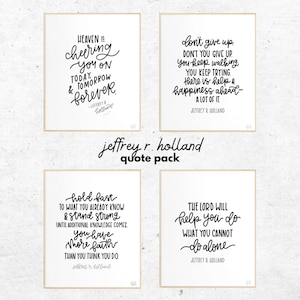 HEAVEN IS
cheering
you on
TODAY,
& TOMORROW
& forever
-JEFFREY R.
holland
don't give up
DON'T YOU GIVE UP
you keep walking
YOU KEEP TRYING
there is help &
happiness ahead-
A LOT OF IT.
JEFFREY R. HOLLAND
jeffrey r. holland
quote pack
hold fast
TO WHAT YOU ALREADY KNOW
& stand strong
UNTIL ADDITIONAL KNOWLEDGE COMES.
you have
more faith
THAN YOU THINK YOU DO.
jeffrey r. holland
THE LORD WILL
help you do
WHAT YOU CANNOT
do alone
JEFFREY R. HOLLAND